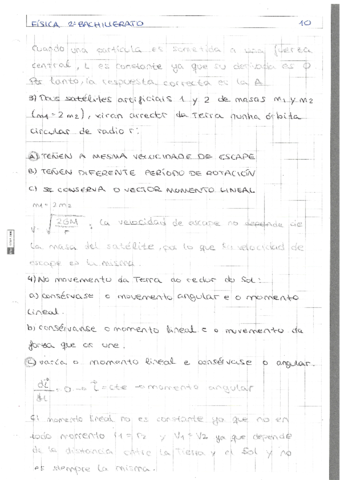 FÍSICA 2º BACHILLERATO 10
Cuando una partícula es sometida a una fuerza
central, L es constante ya que su derivada es 0.
Por tanto, la respuesta correcta es la A
3) Dous satélites artificiais 1 y 2 de masas m1 y m2
(m1 = 2 m2), xiran arredor da Terra nunha órbita
circular de radio r:
A) TEÑEN A MESMA VELOCIDADE DE ESCAPE
B) TEÑEN DIFERENTE PERÍODO DE ROTACIÓN
C) SE CONSERVA O VECTOR MOMENTO LINEAL
m1 = 2m2
V= √2GM/r ; La velocidad de escape no depende de
la masa del satélite, por lo que su velocidad de
escape es la misma.
4) No movemento da Terra ao redor do Sol:
a) consérvase o movemento angular e o momento
lineal.
b) consérvanse o momento lineal e o movemento da
forza que os une.
C) varía o momento lineal e consérvase o angular.
dL/dt = 0 → L = cte → momento angular
El momento lineal no es constante ya que no en
todo momento r1 = r2 y V1 = V2 ya que depende
de la distancia entre la Tierra y el Sol y no
es siempre la misma.